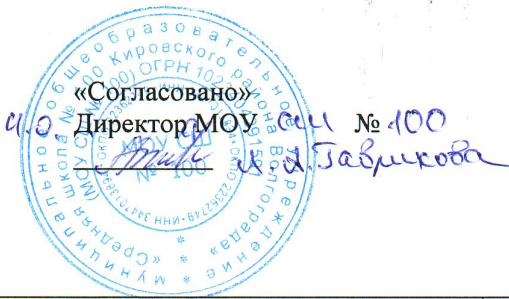 «Согласовано»
и.о. Директор МОУ СШ № 100
И.А. Гаврикова
муниципальное общеобразовательное учреждение
«Средняя школа № 100 Кировского района Волгограда»
(МОУ СШ № 100) ОГРН
МОУ СШ
№ 100